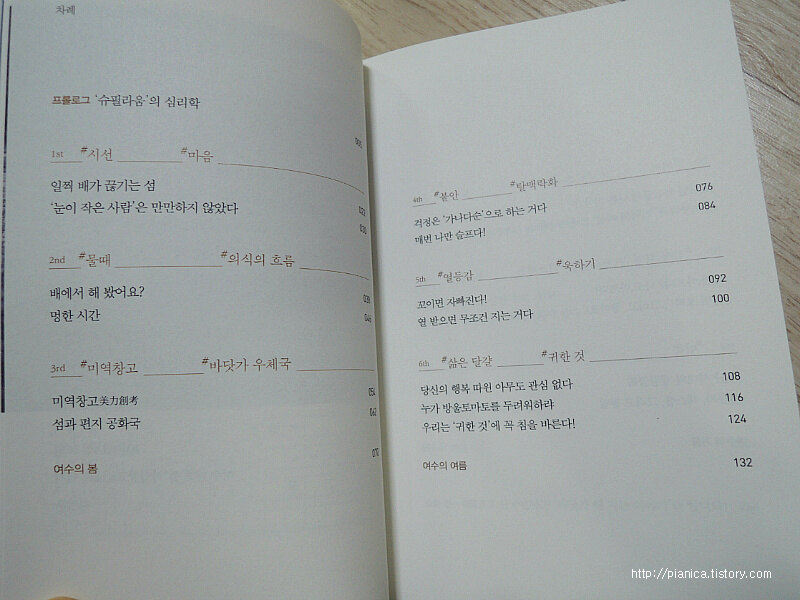 차례
프롤로그 '슈필라움'의 심리학
1st #시선 #마음
일찍 배가 끊기는 섬
'눈이 작은 사람'은 만만하지 않았다
2nd #물때 #의식의 흐름
배에서 해 봤어요?
멍한 시간
3rd #미역창고 #바닷가 우체국
미역창고美力創考
섬과 편지 공화국
여수의 봄
4th #불안 #탈맥락화
걱정은 '가나다순'으로 하는 거다 076
매번 나만 슬프다! 084
5th #열등감 #욱하기
꼬이면 자빠진다! 092
열 받으면 무조건 지는 거다 100
6th #삶은 달걀 #귀한 것
당신의 행복 따윈 아무도 관심 없다 108
누가 방울토마토를 두려워하랴 116
우리는 '귀한 것'에 꼭 침을 바른다! 124
여수의 여름 132
http://pianica.tistory.com